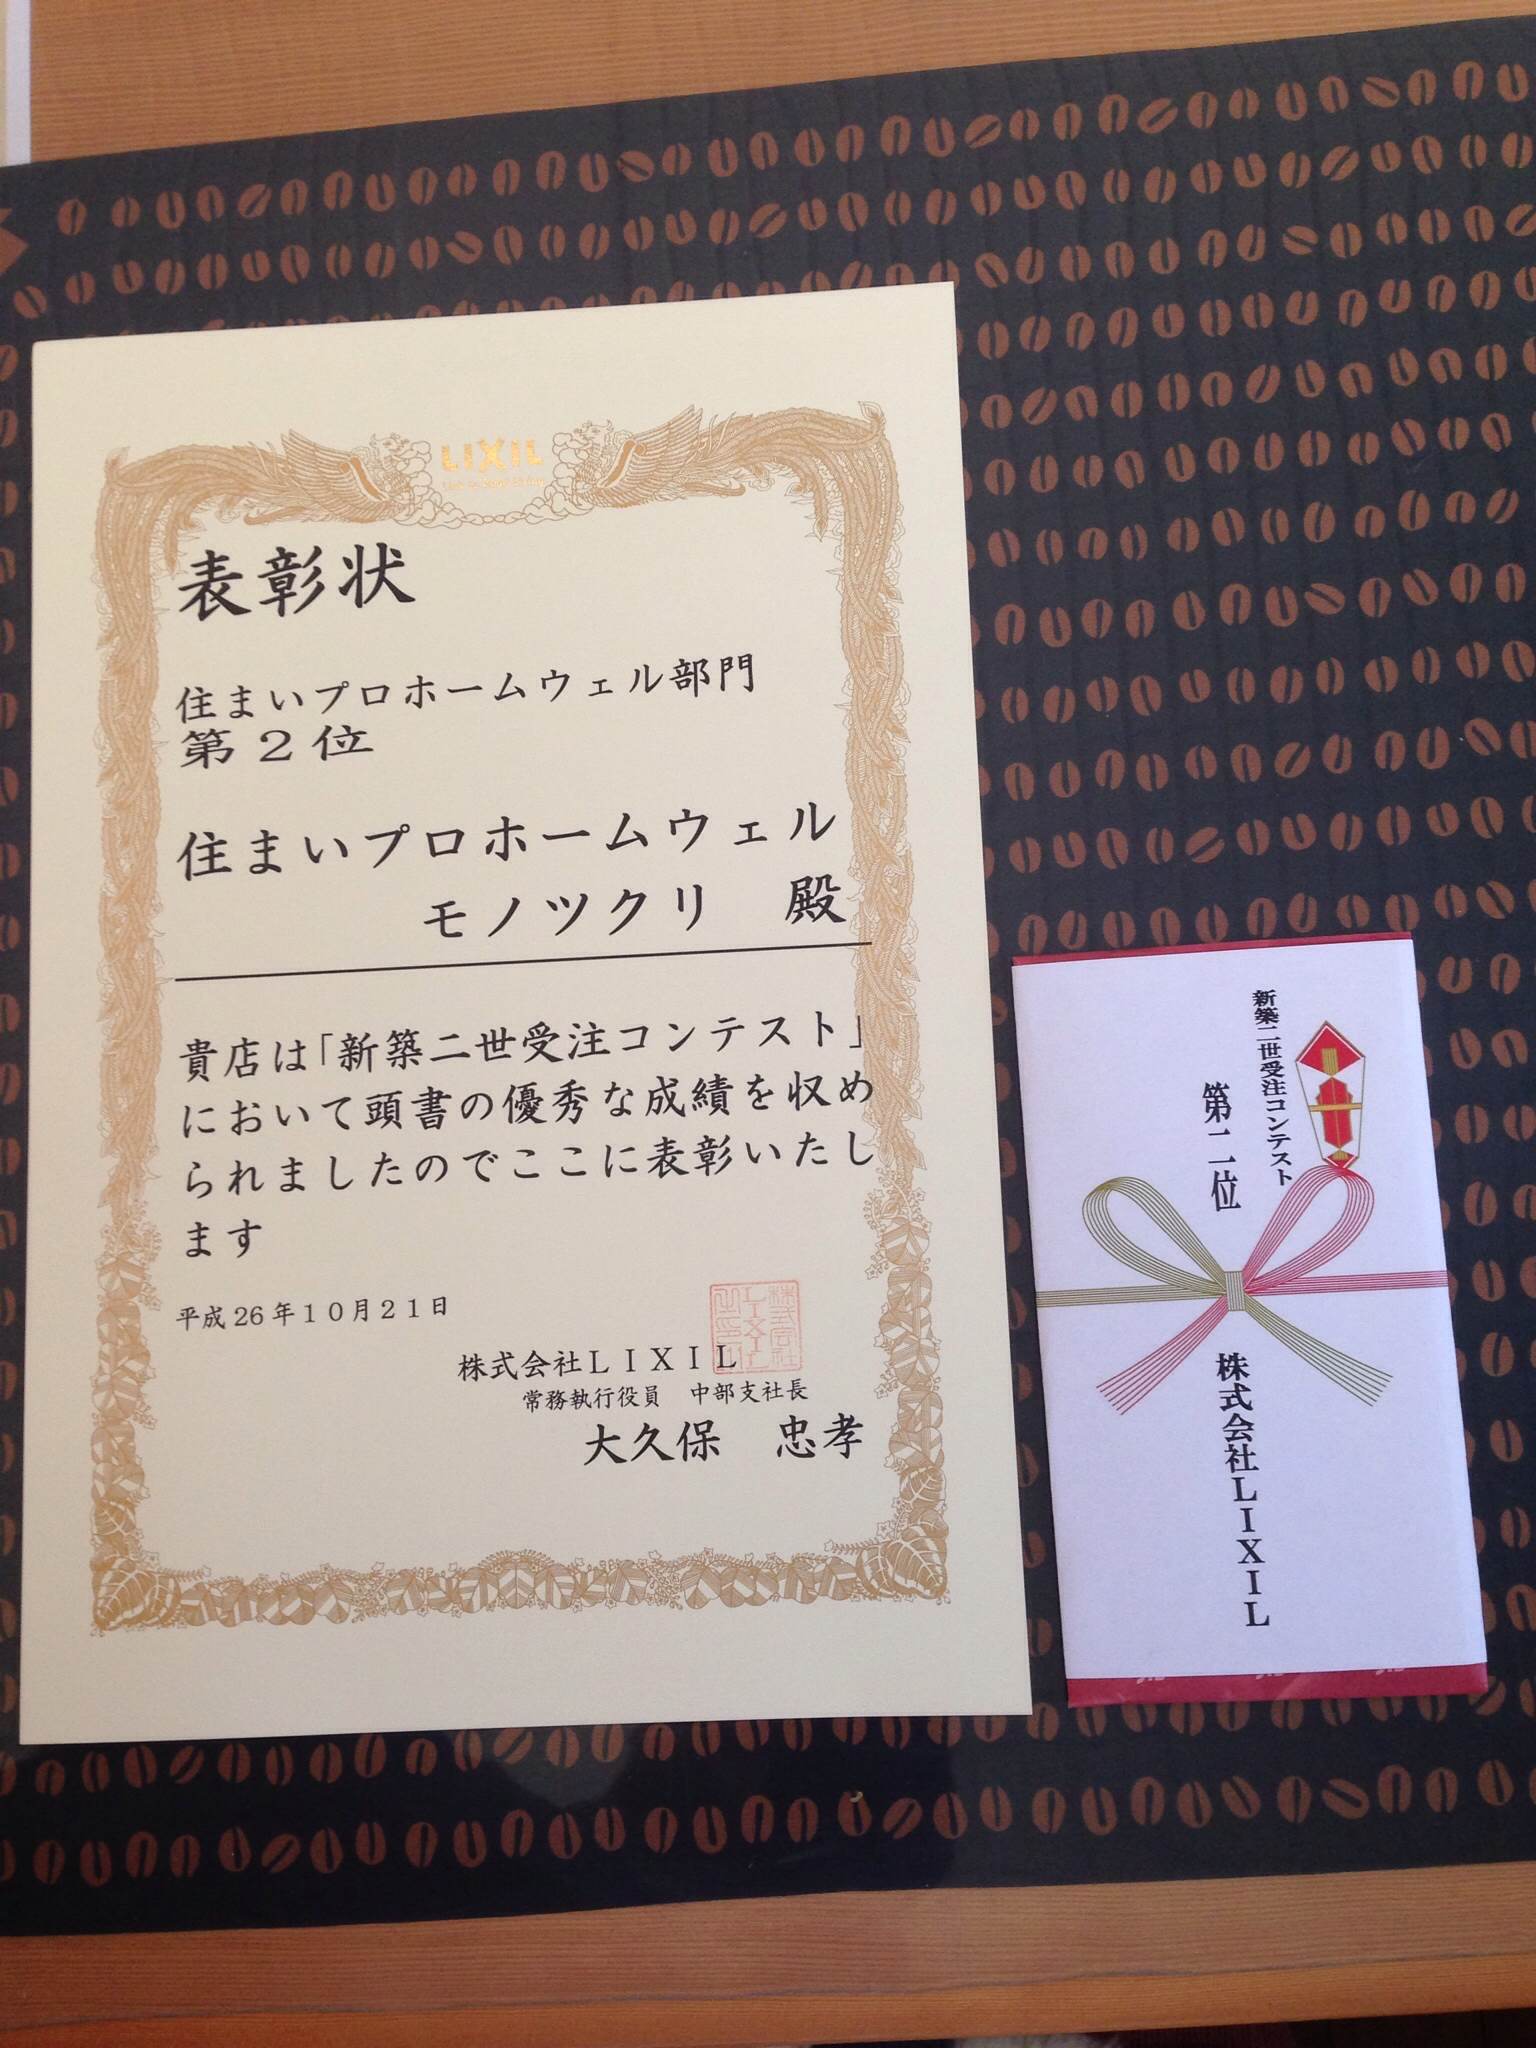 LIXIL
表彰状
住まいプロホームウェル部門
第２位
住まいプロホームウェル
モノツクリ　殿
貴店は「新築二世受注コンテスト」
において頭書の優秀な成績を収め
られましたのでここに表彰いたし
ます
平成26年１０月２１日
株式会社ＬＩＸＩＬ
常務執行役員　中部支社長
大久保　忠孝
新築二世受注コンテスト
第二位
株式会社ＬＩＸＩＬ